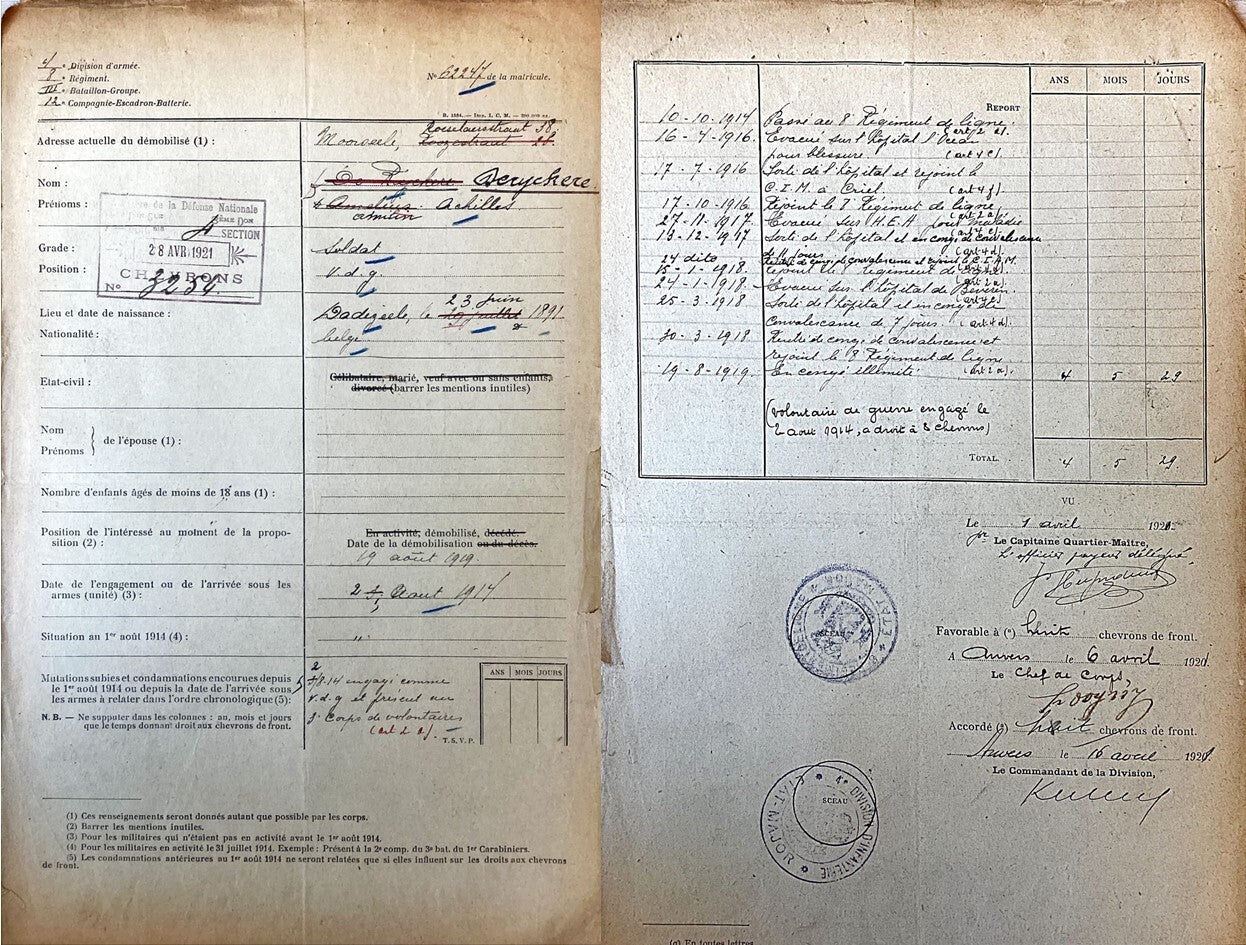 4e Division d'armée.
8e Régiment.
IIIe Bataillon-Groupe.
12e Compagnie-Escadron-Batterie.
No 62247 de la matricule.
Adresse actuelle du démobilisé (1) :
Moorseele, 38,
Nom :
De Ryckere Deryckere
Prénoms :
Achilles
Ministère de la Défense Nationale
SECTION
28 AVR 1921
CHEVRONS
No 3254
Grade :
Soldat
Position :
V. d. g.
23 juin
Lieu et date de naissance :
Dadizeele, le 29 juillet 1891
Nationalité :
belge
Etat-civil :
Célibataire, marié, veuf avec ou sans enfants,
divorcé (barrer les mentions inutiles)
Nom
Prénoms
de l'épouse (1) :
Nombre d'enfants âgés de moins de 18 ans (1) :
Position de l'intéressé au moment de la propo-
sition (2) :
En activité, démobilisé, décédé.
Date de la démobilisation ou du décès.
19 août 1919
Date de l'engagement ou de l'arrivée sous les
armes (unité) (3) :
2 Aout 1914
Situation au 1er août 1914 (4) :
"
Mutations subies et condamnations encourues depuis
le 1er août 1914 ou depuis la date de l'arrivée sous
les armes à relater dans l'ordre chronologique (5) :
N. B. — Ne supputer dans les colonnes : an, mois et jours
que le temps donnant droit aux chevrons de front.
2
8-14 engagé comme
V. d. g et présent au
Corps de volontaires
(art 2 a).
ANS MOIS JOURS
T. S. V. P.
(1) Ces renseignements seront donnés autant que possible par les corps.
(2) Barrer les mentions inutiles.
(3) Pour les militaires qui n'étaient pas en activité avant le 1er août 1914.
(4) Pour les militaires en activité le 31 juillet 1914. Exemple : Présent à la 2e comp. du 3e bat. du 1er Carabiniers.
(5) Les condamnations antérieures au 1er août 1914 ne seront relatées que si elles influent sur les droits aux chevrons
de front.
ANS MOIS JOURS
REPORT
10-10-1914 Passe au 8e Régiment de ligne.
(art 2 a).
16-4-1916. Evacué sur l'hôpital l'Océan
pour blessure. (art 4 c).
17-7-1916 Sorti de l'hôpital et rejoint le
C. I. M. à Criel. (art 4 f).
17-10-1916 Rejoint le 8e Régiment de ligne,
(art 2 a)
27-11-1917. Evacué sur l'H.E.A. pour maladie
13-12-1917 Sorti de l'hôpital et en congé de convalescence
24 dito
15-1-1918. rejoint le 8e Régiment de ligne.
(art 2 a).
24-1-1918. Evacué sur l'hôpital de Beveren.
25-3-1918 Sorti de l'hôpital et en congé de
convalescence de 7 jours. (art 4 d).
30-3-1918 Rentré de congé de convalescence et
rejoint le 8e Régiment de ligne
(art 2 a).
19-8-1919. En congé illimité. 4 5 29
(volontaire de guerre engagé le
2 aout 1914, a droit à 8 chevrons)
TOTAL. 4 5 29.
VU
Le 1 avril 1921
Le Capitaine Quartier-Maître,
L'officier payeur délégué
ETAT MAJOR
SCEAU
Favorable à (a) huit chevrons de front.
A Anvers le 6 avril 1921
Le Chef de Corps,
Accordé (a) huit chevrons de front.
Anvers le 16 avril 1921
Le Commandant de la Division,
4e DIVISION D'INFANTERIE
ETAT-MAJOR
SCEAU
(a) En toutes lettres.